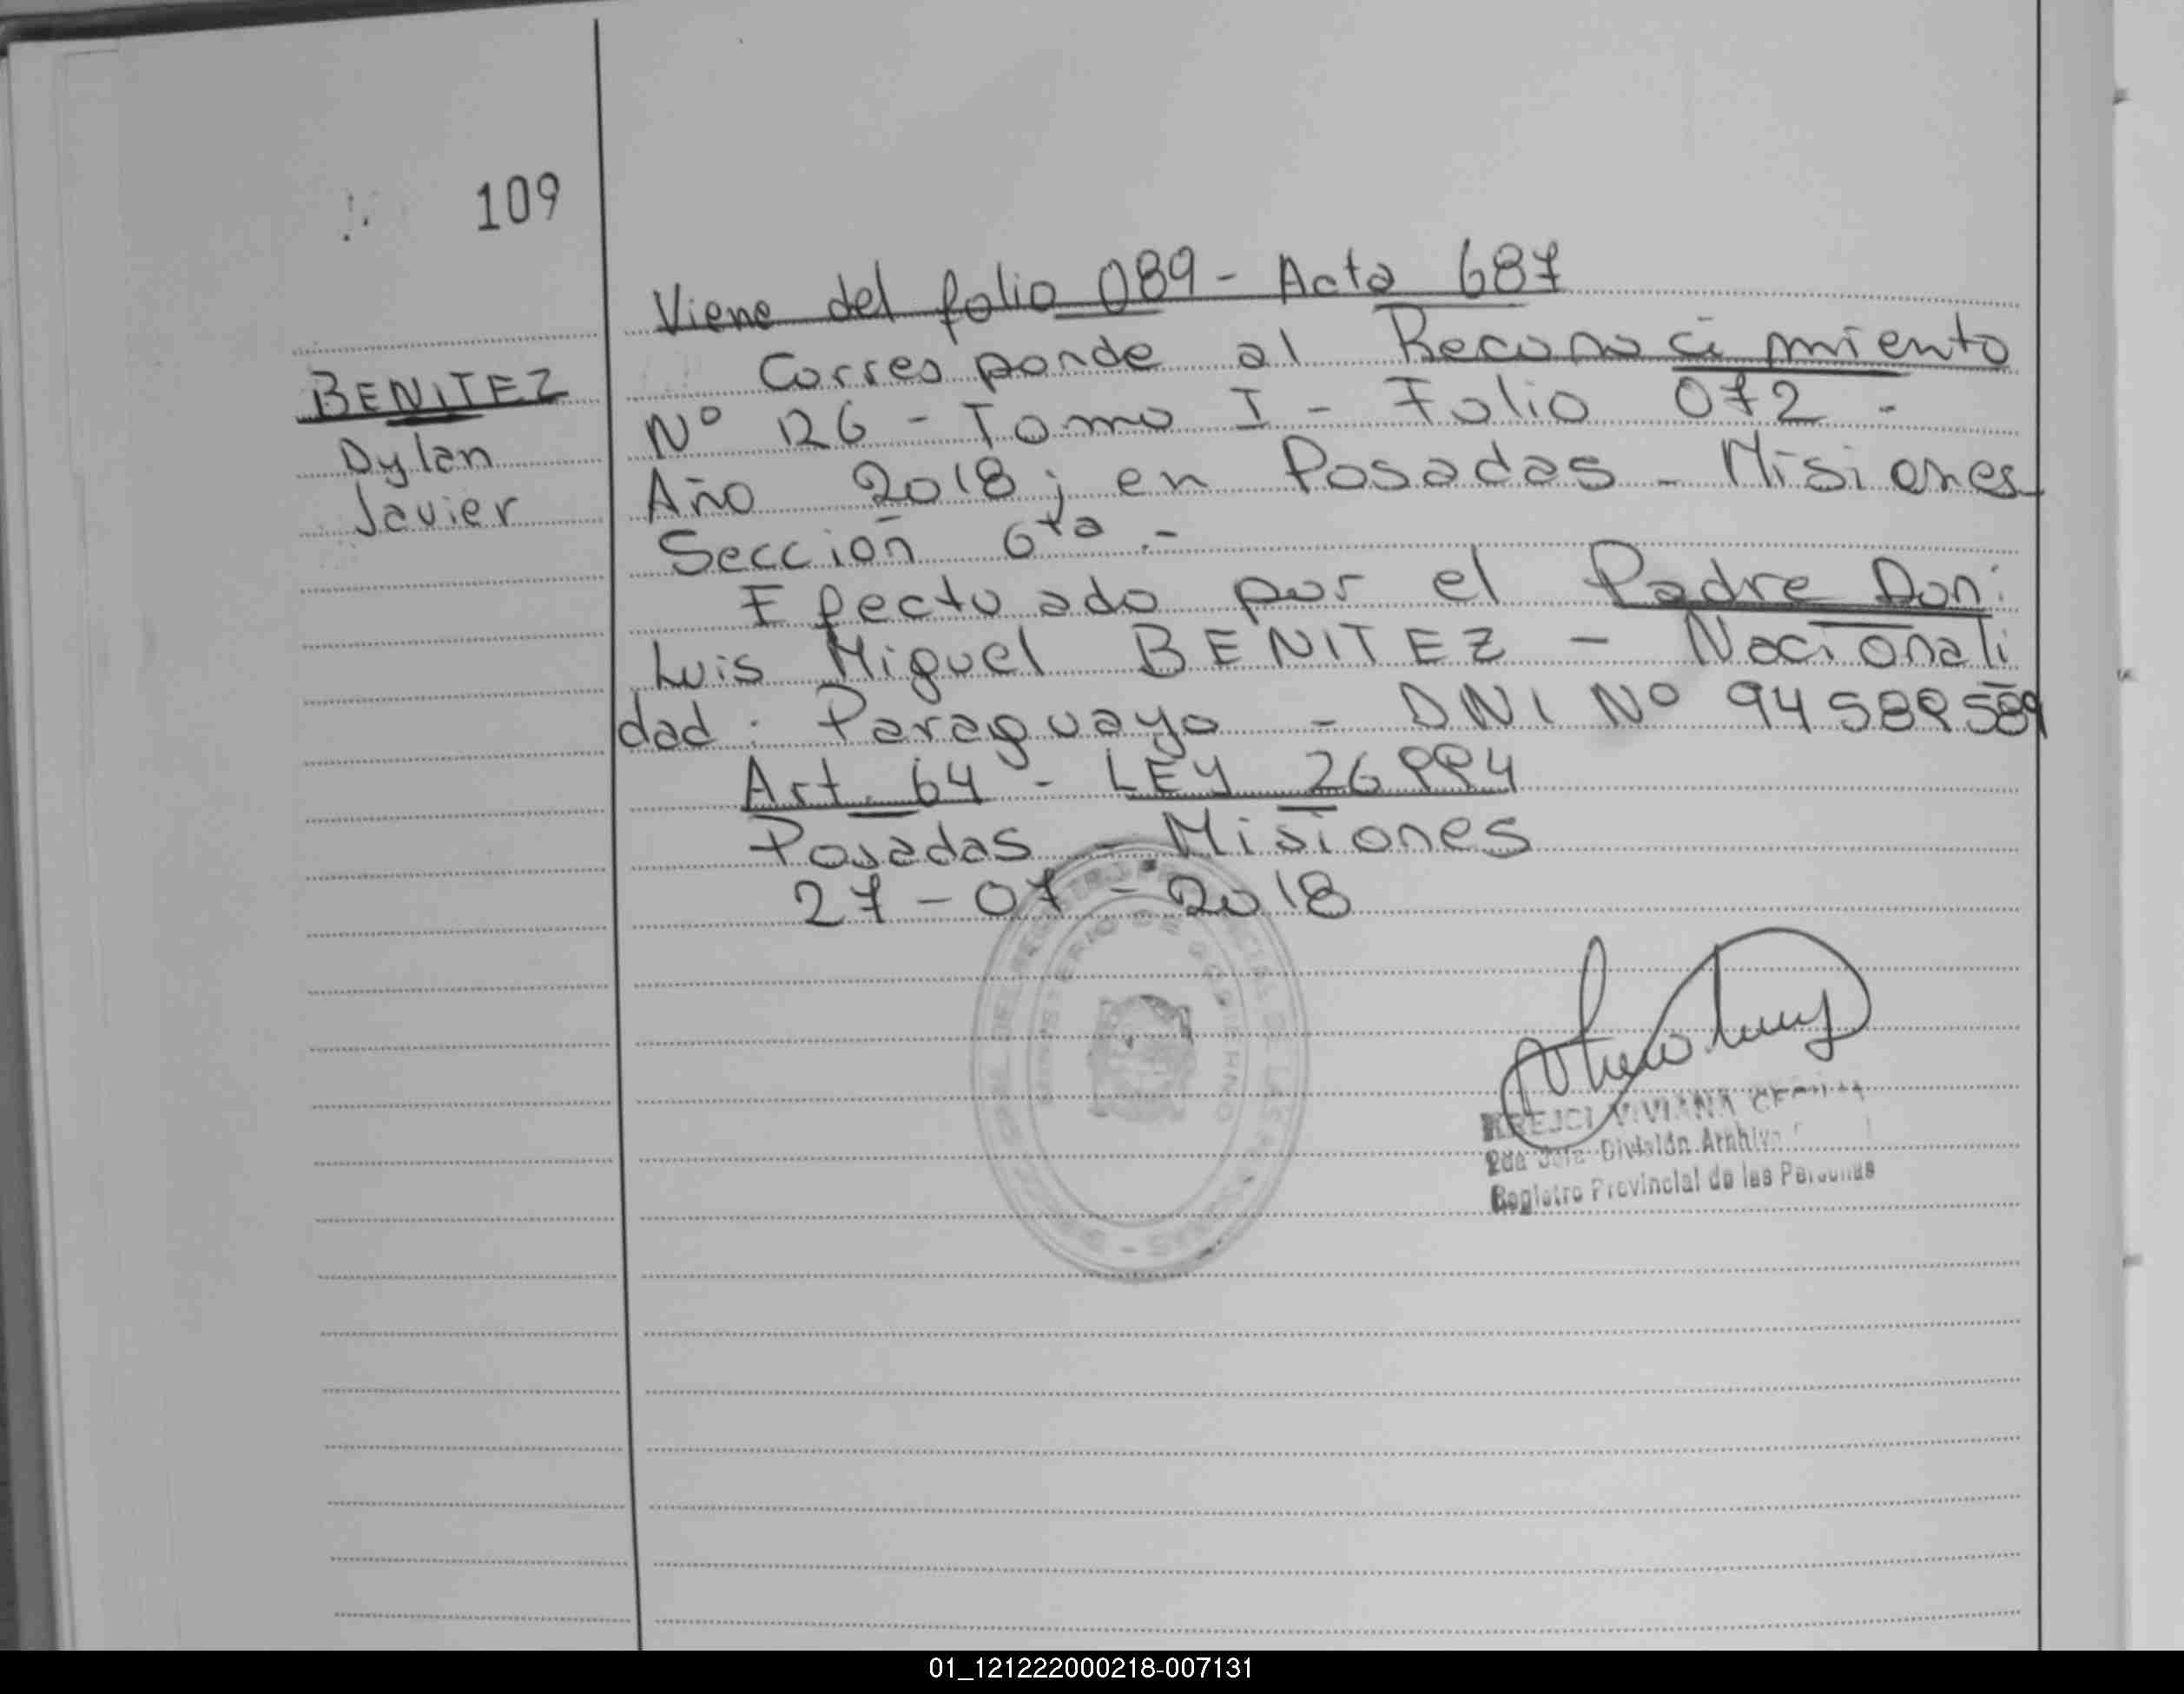 109
Viene del folio 089 - Acta 687
BENITEZ
Dylan
Javier
Corresponde al Reconocimiento
Nº 126 - Tomo I - Folio 072 -
Año 2018; en Posadas - Misiones
Sección 6ta .-
Efectuado por el Padre Don:
Luis Miguel BENITEZ - Nacionali
dad: Paraguayo - DNI Nº 94589589
Art. 64 - LEY 26994
Posadas - Misiones
27-07-2018
MINISTERIO DE GOBIERNO
VIVIANA
División
Registro Provincial de las Personas
01_121222000218-007131